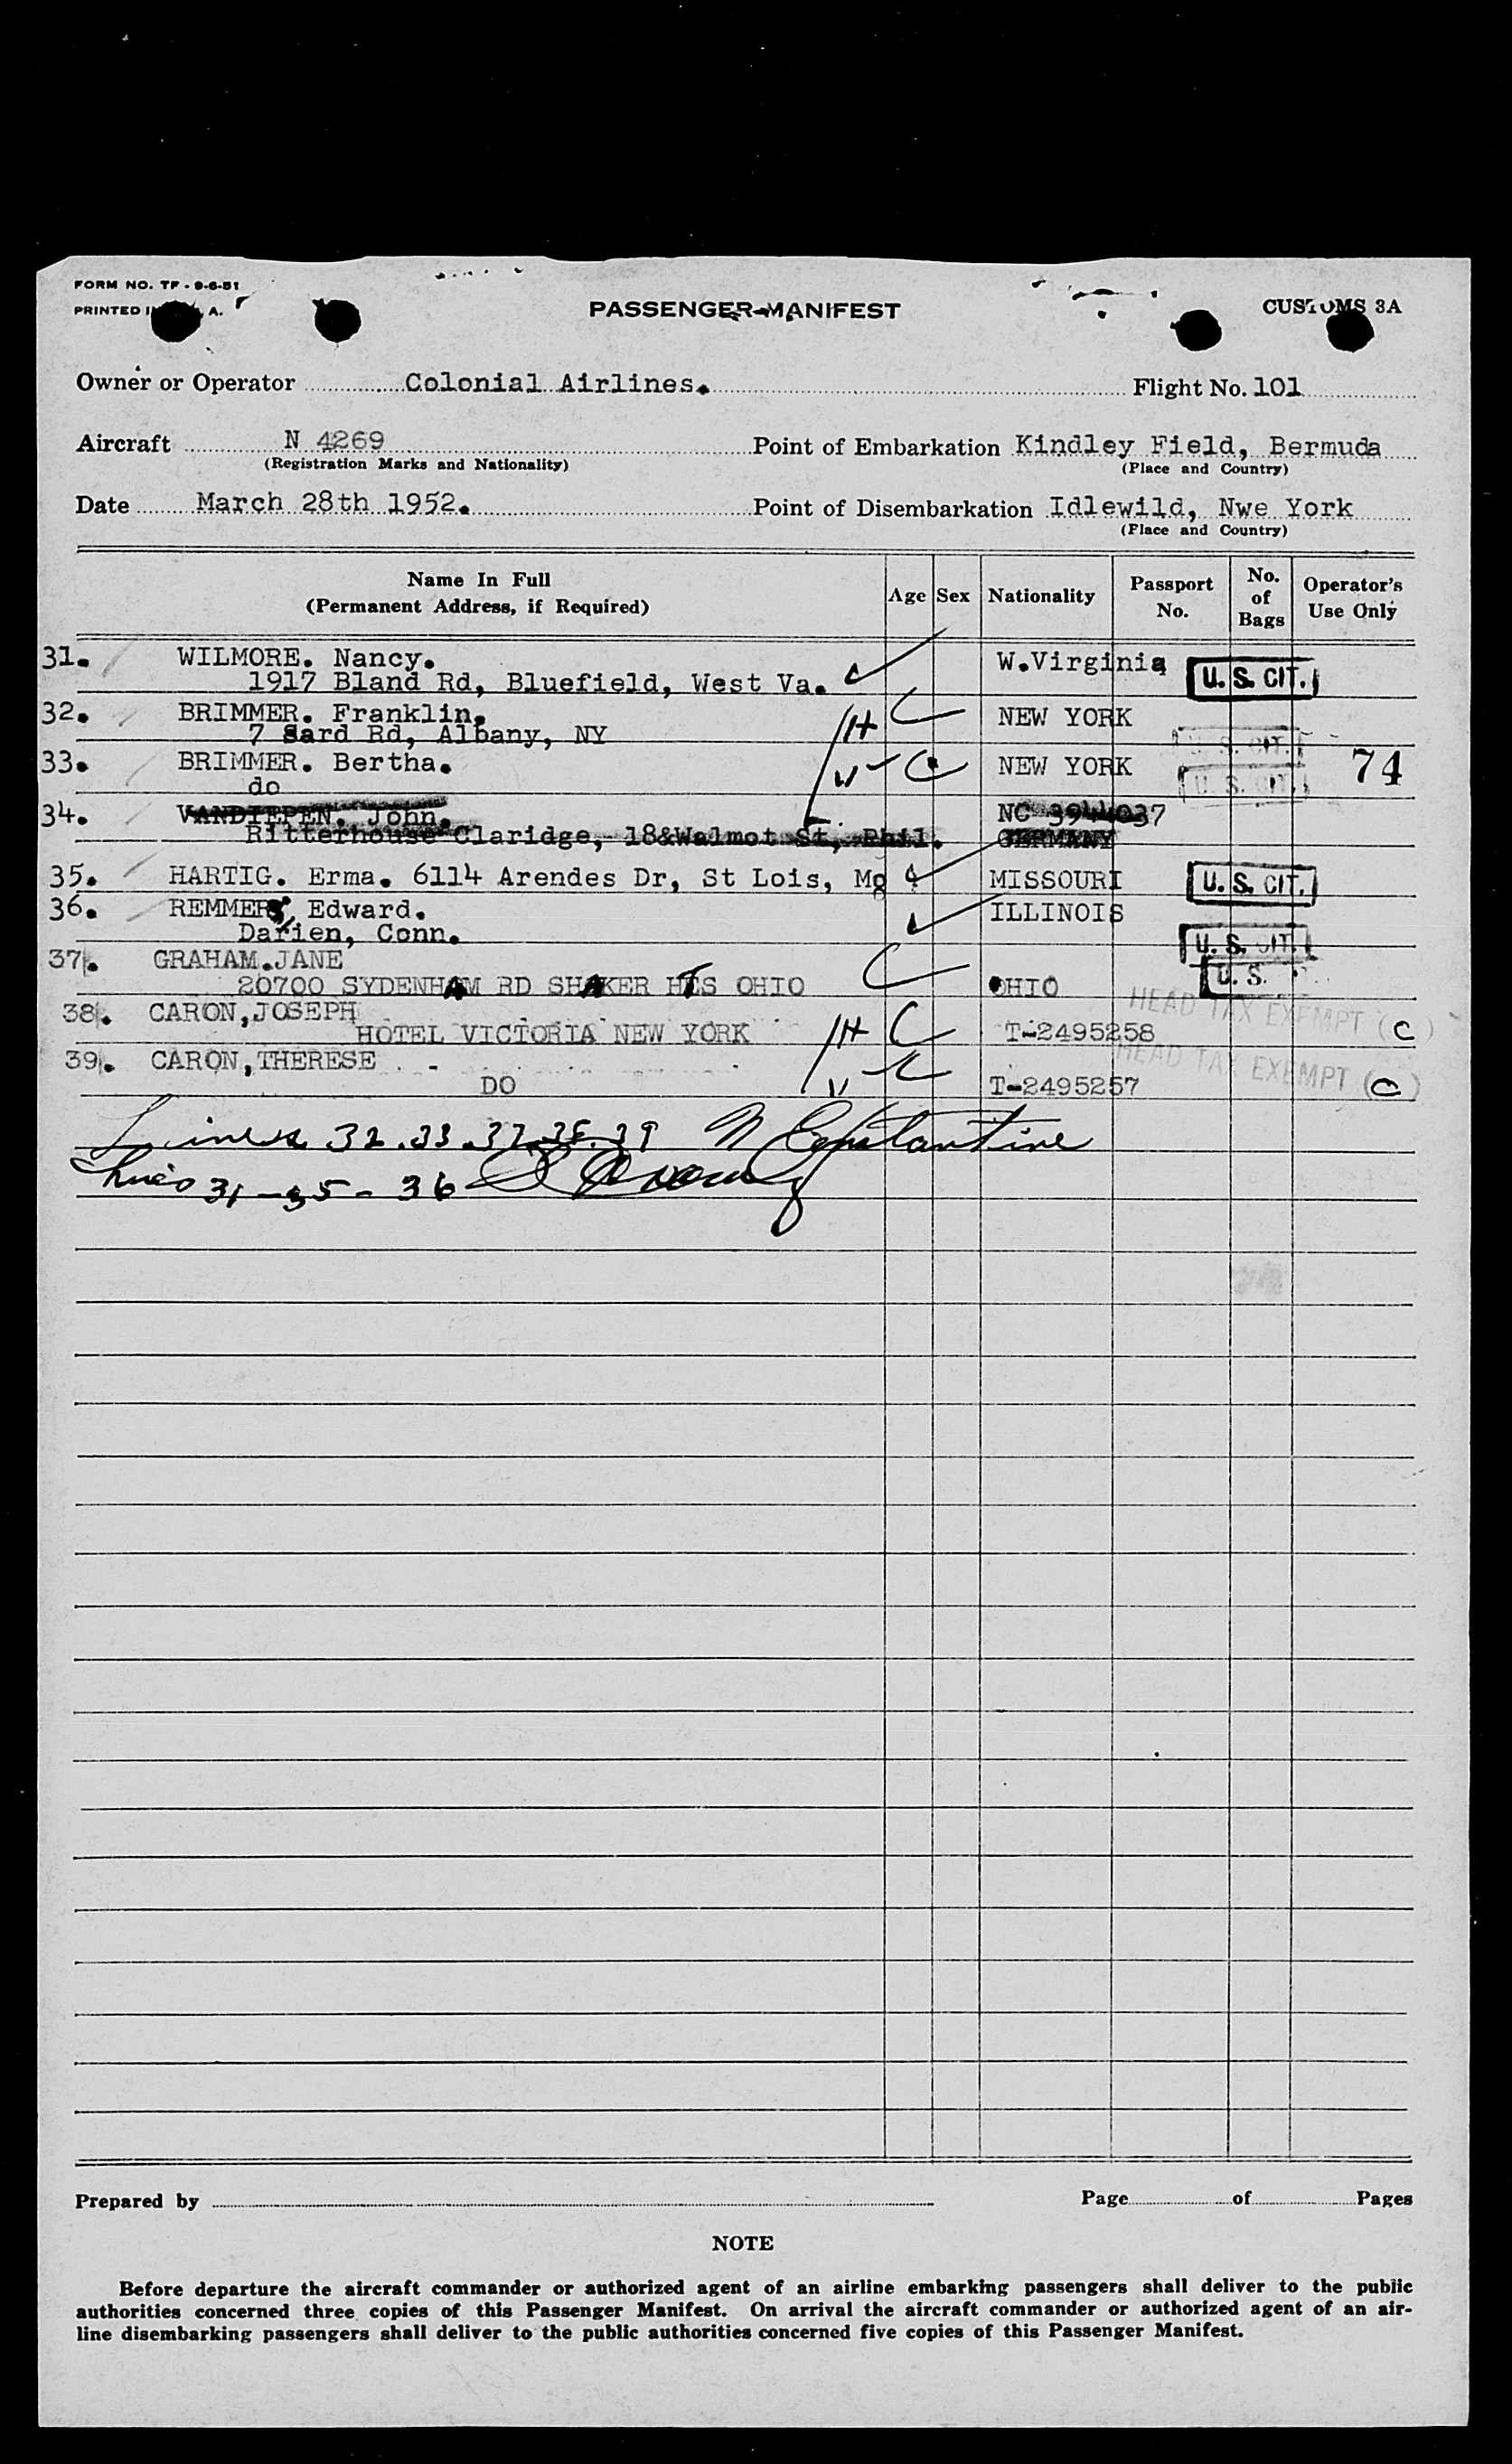 FORM NO. TF - 9-6-51
PRINTED IN A.
PASSENGER MANIFEST
CUSTOMS 3A
Owner or Operator Colonial Airlines. Flight No. 101
Aircraft N 4269 Point of Embarkation Kindley Field, Bermuda
(Registration Marks and Nationality) (Place and Country)
Date March 28th 1952. Point of Disembarkation Idlewild, Nwe York
(Place and Country)
Name In Full
(Permanent Address, if Required)
Age Sex Nationality
Passport
No.
No.
of
Bags
Operator's
Use Only
31. WILMORE. Nancy. W.Virginia U.S. CIT.
1917 Bland Rd, Bluefield, West Va.
32. BRIMMER. Franklin. H NEW YORK
7 Sard Rd, Albany, NY U.S. CIT.
33. BRIMMER. Bertha. W NEW YORK U.S. CIT. 74
do
34. VANDIEPEN. John. NC 3944037
Ritterhouse Claridge, 18&Walmot St, Phil. GERMANY
35. HARTIG. Erma. 6114 Arendes Dr, St Lois, Mo MISSOURI U.S. CIT.
36. REMMERS, Edward. ILLINOIS
Darien, Conn. U.S. CIT.
37. GRAHAM.JANE U.S.
20700 SYDENHAM RD SHAKER HTS OHIO OHIO
38. CARON,JOSEPH HEAD TAX EXEMPT (C)
HOTEL VICTORIA NEW YORK H T-2495258
39. CARON,THERESE HEAD TAX EXEMPT (C)
DO W T-2495257
Lines 32.33.37.38.39 N Constantine
Lines 31-35-36
Prepared by Page of Pages
NOTE
Before departure the aircraft commander or authorized agent of an airline embarking passengers shall deliver to the public
authorities concerned three copies of this Passenger Manifest. On arrival the aircraft commander or authorized agent of an air-
line disembarking passengers shall deliver to the public authorities concerned five copies of this Passenger Manifest.